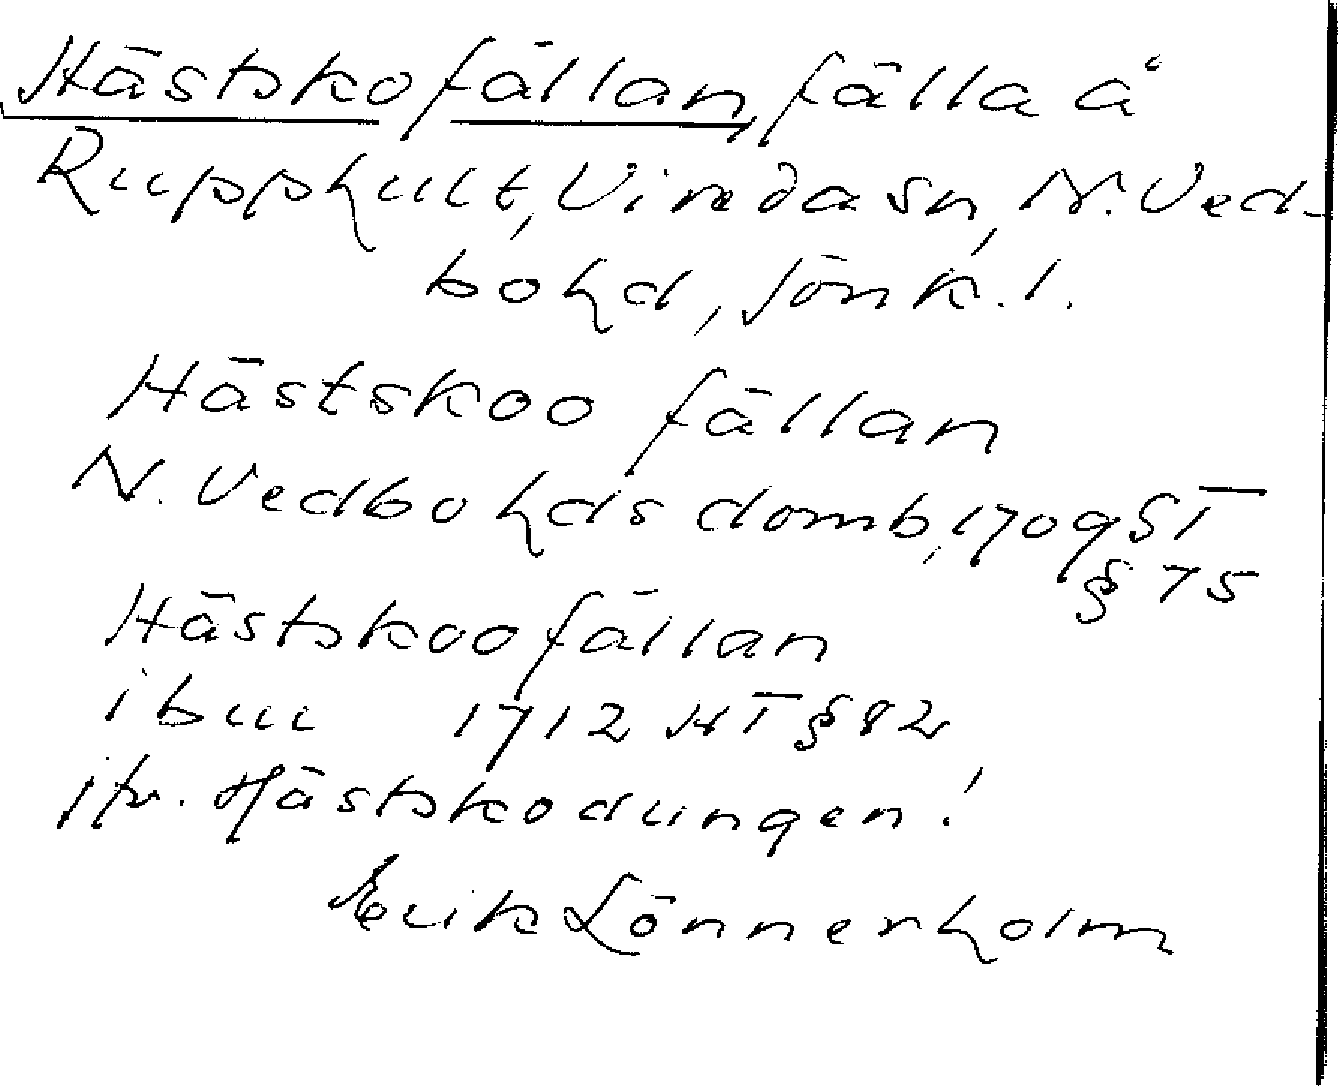 Hästskofällan, fälla å
Rupphult, Vireda sn, N. Ved-
bo hd, Jönk. l.
Hästskoo fällan
N. Vedbo hds domb, 1709 ST
§ 75
Hästskoofällan
ibm 1712 HT § 82
jfr. Hästskodungen!
Erik Lönnerholm